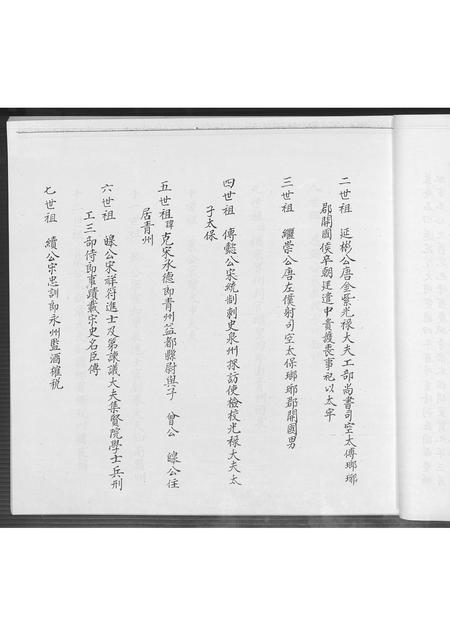 二世祖　延彬公唐金紫光禄大夫工部尚書司空太傅瑯琊
郡開國侯卒朝廷遣中貴護喪事祀以太牢
三世祖　繼崇公唐左僕射司空太保瑯琊郡開國男
四世祖　傳懿公宋統制刺史泉州採訪使檢校光禄大夫太
子太保
五世祖諱克宋承德郎青州益都縣尉與子　曾公　緣公徃
居青州
六世祖　緣公宋祥符進士及第諫議大夫集賢院學士兵刑
工三部侍郎事蹟載宋史名臣傳
七世祖　績公宗忠訓郎永州監酒榷稅